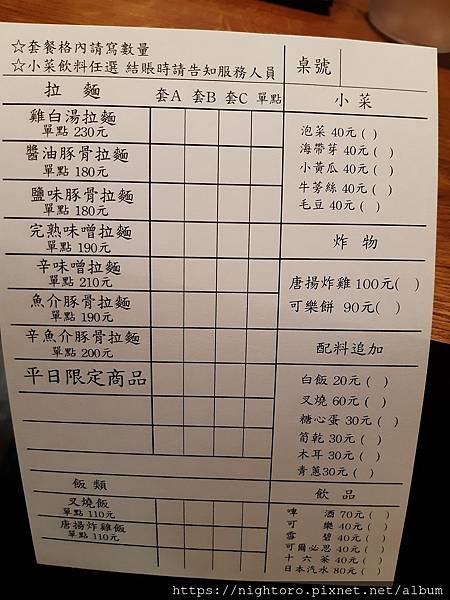 ☆套餐格內請寫數量
☆小菜飲料任選 結賬時請告知服務人員
桌號
拉麵 套A 套B 套C 單點
雞白湯拉麵
單點 230元
醬油豚骨拉麵
單點 180元
鹽味豚骨拉麵
單點 180元
完熟味噌拉麵
單點 190元
辛味噌拉麵
單點 210元
魚介豚骨拉麵
單點 190元
辛魚介豚骨拉麵
單點 200元
平日限定商品
飯類
叉燒飯
單點 110元
唐揚炸雞飯
單點 110元
小菜
泡菜 40元( )
海帶芽 40元( )
小黃瓜 40元( )
牛蒡絲 40元( )
毛豆 40元( )
炸物
唐揚炸雞 100元( )
可樂餅 90元( )
配料追加
白飯 20元( )
叉燒 60元( )
糖心蛋 30元( )
筍乾 30元( )
木耳 30元( )
青蔥30元( )
飲品
啤酒 70元( )
可樂 40元( )
雪碧 40元( )
可爾必思 40元( )
十六茶 40元( )
日本汽水 80元( )
https://nightoro.pixnet.net/album